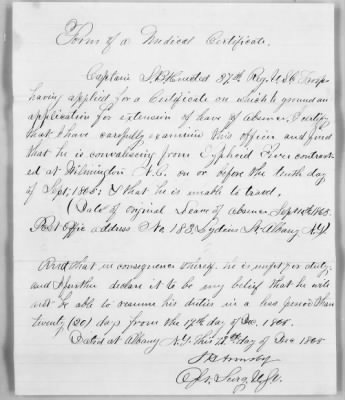 Form of a Medical Certificate.
Captain 37th Reg. U.S.C. Troops
having applied for a Certificate on which to ground an
application for extension of leave of absence, I certify
that I have carefully examined this officer and find
that he is convalescing from Typhoid Fever contract-
ed at Wilmington N.C. on or before the tenth day
of Sept. 1865 & that he is unable to travel.
(Date of original Leave of absence Sept 1865.
Post Office address No. 183 Lydius St Albany N.Y.)
And that in consequence thereof he is unfit for duty,
and I further declare it to be my belief that he will
not be able to resume his duties in a less period than
twenty (20) days from the 12th day of Dec. 1865.
Dated at Albany N.Y. this day of Dec 1865
Armsby
Surg. U.S.V.